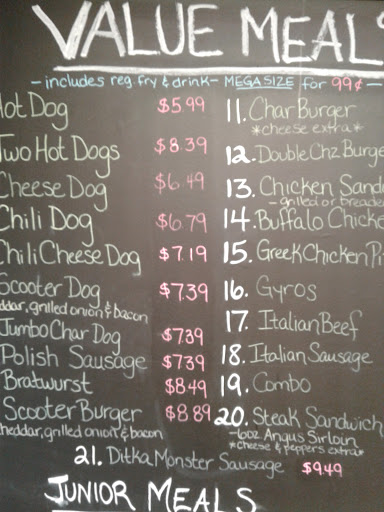 VALUE MEAL
- includes reg. fry & drink - MEGASIZE for 99¢ -
Hot Dog $5.99
Two Hot Dogs $8.39
Cheese Dog $6.49
Chili Dog $6.79
Chili Cheese Dog $7.19
Scooter Dog $7.39
ddar, grilled onion & bacon
Jumbo Char Dog $7.39
Polish Sausage $7.39
Bratwurst $8.49
Scooter Burger $8.89
heddar, grilled onion & bacon
11. Char Burger
*cheese extra*
12. Double Chz Burge
13. Chicken Sand
- grilled or breade
14. Buffalo Chicke
15. Greek Chicken Pi
16. Gyros
17. Italian Beef
18. Italian Sausage
19. Combo
20. Steak Sandwich
- 6oz Angus Sirloin
*cheese & peppers extra*
21. Ditka Monster Sausage $9.49
JUNIOR MEALS